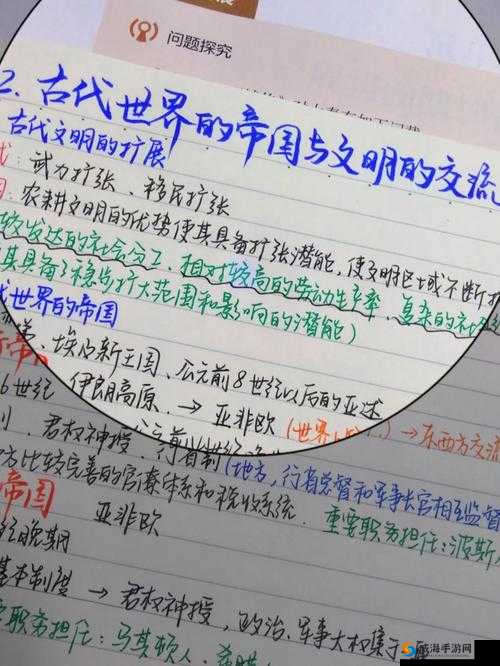 问题探究
2. 古代世界的帝国与文明的交流
古代文明的扩展
武力扩张、移民扩张
农耕文明的优势使其具备扩张潜能，使文明区域不断扩
较发达的社会分工，相对较高的劳动生产率、复杂的社
其具备了稳步扩大范围和影响的潜能）
世界的帝国
埃及新王国、公元前8世纪以后的亚述
6世纪 伊朗高原 → 亚非欧（世界 → 东西方交流
君权神授、行省制（地方，行省总督和军事长官相互监督
方比较完善的官僚体系和税收系统. 重要职务担任：波斯人
帝国 亚非欧
晚期
基本制度 → 君权神授，政治、军事大权集于
职务担任：马其顿人、希腊
威海手游网